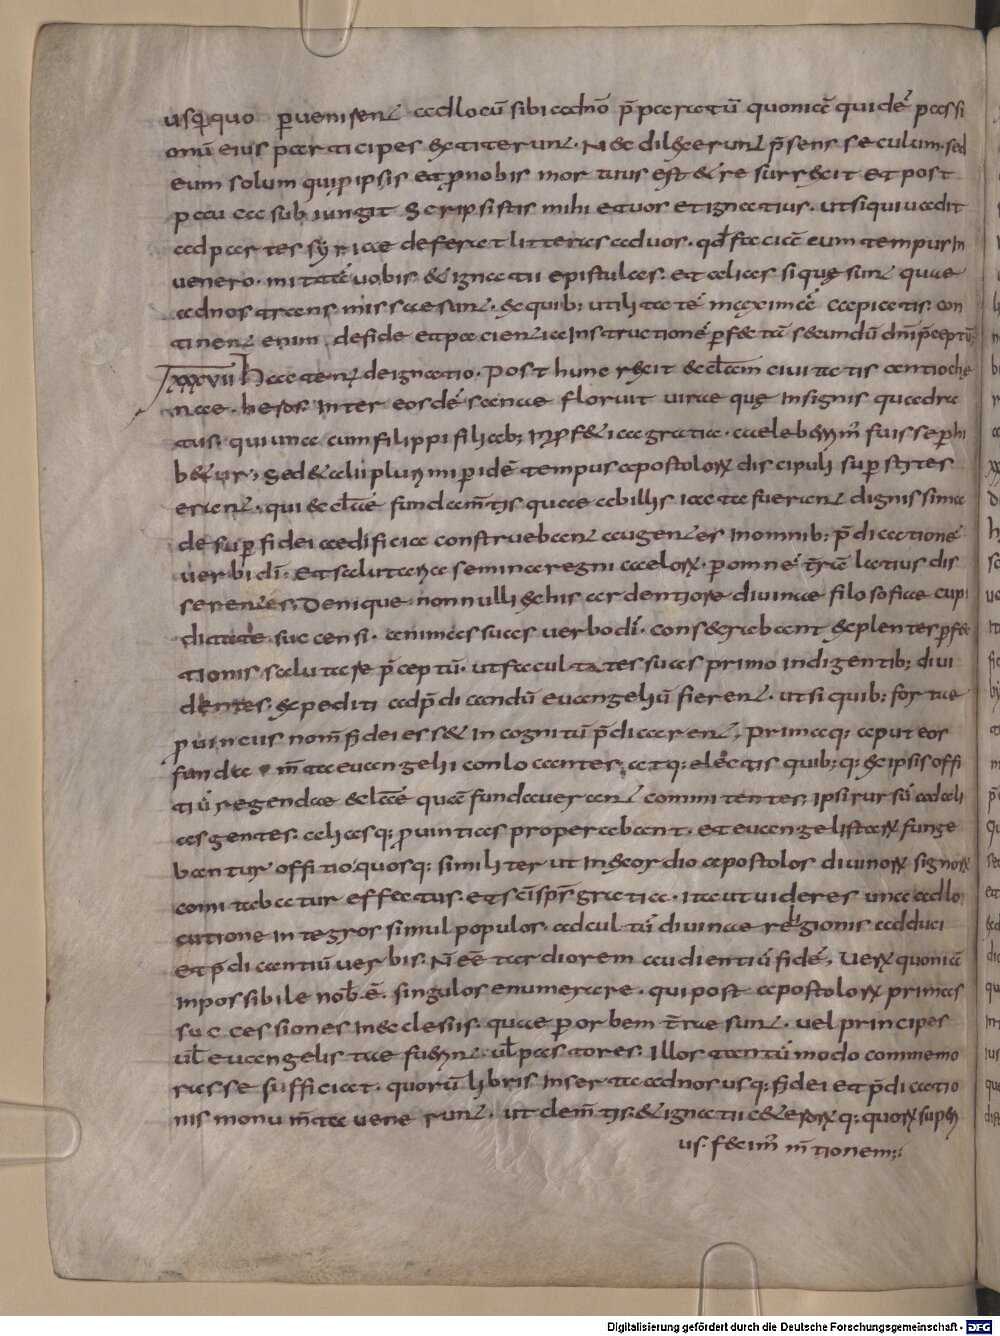 usq;quo ꝑueniſent adlocū ſibi addno p̄paratū quoniā quidē paſſi
onū eius participes extiterunt. Nec dilexerunt p̄ſens ſeculum. ſed
eum ſolum qui ꝓipſis et ꝓnobis mortuus eſt & reſurrexit Et poſt
pauca subiungit Scripſiſtis mihi et uos et ignatius. ut ſiqui uadit
ad partes ſyriae deferat litteras aduos. qd̄ faciā eum tempus In
uenero. mittā uobis & ignatii epiſtulas. et alias ſi quę ſunt quae
adnos tranſmiſſae ſunt. ex quib; utilitatē maximā capiatis. con
tinent enim defide et patientia Inſtructionē ꝑfectā ſecundū dn̄i p̄ceptū
XXXVII Hactenus deignatio. Poſt hunc rexit eccl̄am ciuitatis antioche
nae. heros. Inter eosdē ſane floruit uir aeque Inſignis quadra
tus. qui una cum filippi filiab; In ꝓfetiae gratia. caeleberrim̄ fuiſſe ꝑhi
betur; Sed & alii plurimi ꝑ idē tempus apoſtoloꝝ diſcipuli ſuꝑſtites
erant. qui eccl̄ae fundam̄tis quae ab illis iacta fuerant digniſſima
deſuꝑ fidei aedificia conſtruebant augentes Inomnib; p̄dicationē
uerbi dī. Et ſalutaria ſemina regni caeloꝝ. ꝑ omnē t̄rā latius diſ
ſerentes; Denique nonnulli exhis ardentiore diuinae filoſofiae cupi
ditate ſuccenſi. animas ſuas uerbo dī. conſecrabant explentes ꝑfec
tionis ſalutare p̄ceptū. ut facultates ſuas primo indigentib; diui
dentes. expediti adp̄dicandū euangeliū fierent. ut ſi quib; forte
ꝓuinciis nom̄ fidei eſſet Incognitū p̄dicarent, Primaq; aput eos
fundam̄ta euangelii conlocantes. atq; electis quib;q; exipſis offi
tiū regendae eccl̄ae quā fundauerant committentes. ipſi rurſū ad ali
as gentes. aliasq; ꝓuintias properabant. et euangeliſtaꝝ funge
bantur offitio quosq; ſimiliter ut In exordio apoſtolos diuinoꝝ ſignoꝝ
comitabatur effectus. et ſc̄i ſp̄s gratia. ita ut uideres una adlo
cutione Integros ſimul populos. adcultū diuinae religionis adduci
et p̄dicantiū uerbis. N eē tardiorem audientiū fidē, Veꝝ quoniā
inpoſſibile nob̄.ē. ſingulos enumerare. qui poſt apoſtoloꝝ primas
ſucceſſiones In eccleſiis. quae ꝑ orbem t̄rae ſunt. uel principes
ul̄ euangeliſtae fuerunt. ul̄ paſtores; Illos tantū modo commemo
raſſe ſufficiat. quorū libris Inſerta adnos usq; fidei et p̄dicatio
nis monum̄ta uenerunt. ut clem̄tis. & ignatii ceteroꝝq; quoꝝ ſuperi
us. fecim̄ m̄tionem;;
Digitalisierung gefördert durch die Deutsche Forschungsgemeinschaft - DFG